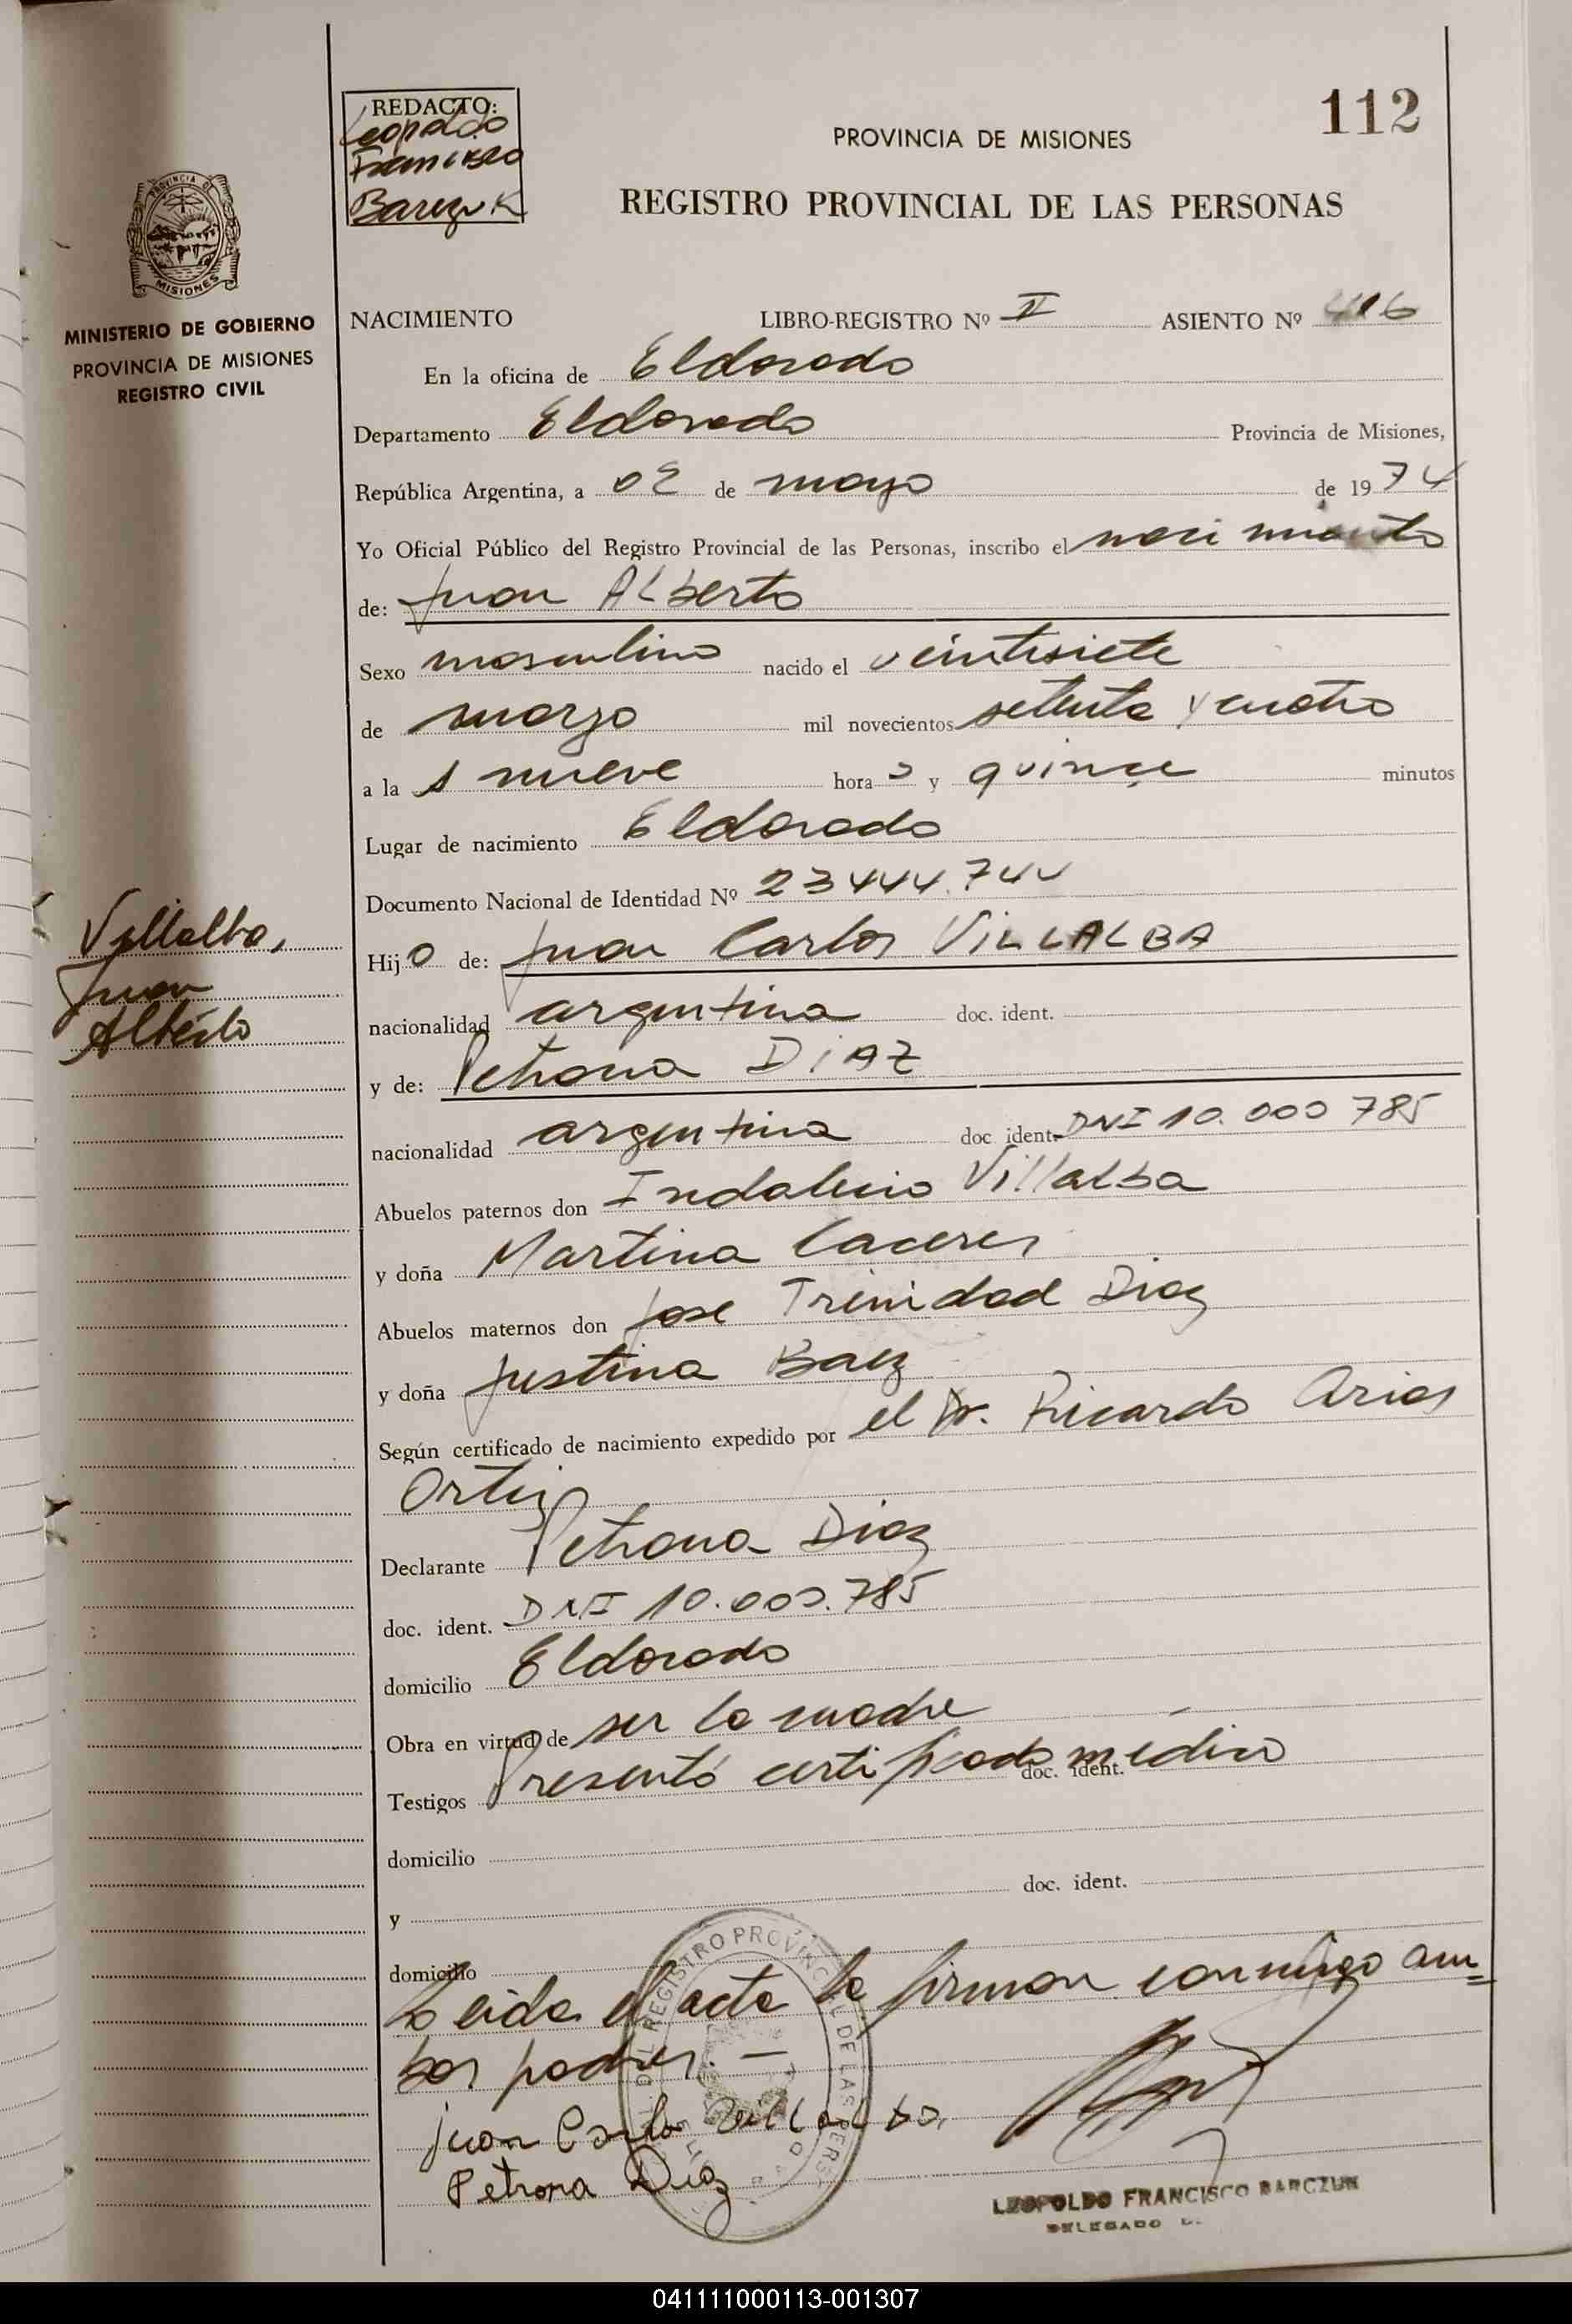 112
REDACTO:
Leopoldo
Francisco
Barczuk
PROVINCIA DE MISIONES
REGISTRO PROVINCIAL DE LAS PERSONAS
PROVINCIA D
MISIONES
MINISTERIO DE GOBIERNO
PROVINCIA DE MISIONES
REGISTRO CIVIL
NACIMIENTO LIBRO-REGISTRO Nº II ASIENTO Nº
En la oficina de Eldorado
Departamento Eldorado Provincia de Misiones,
República Argentina, a 02 de mayo de 1974
Yo Oficial Público del Registro Provincial de las Personas, inscribo el nacimiento
de: Juan Alberto
Sexo masculino nacido el veintisiete
de marzo mil novecientos setenta y cuatro
a la s nueve hora s y quince minutos
Lugar de nacimiento Eldorado
Documento Nacional de Identidad Nº 23444.744
Villalba,
Juan
Alberto
Hijo de: Juan Carlos VILLALBA
nacionalidad argentina doc. ident.
y de: Petrona DIAZ
nacionalidad argentina doc ident. DNI 10.000 785
Abuelos paternos don Indalecio Villalba
y doña Martina Caceres
Abuelos maternos don Jose Trinidad Diaz
y doña Justina Baez
Según certificado de nacimiento expedido por el Dr. Ricardo Arias
Ortiz
Declarante Petrona Diaz
doc. ident. DNI 10.000.785
domicilio Eldorado
Obra en virtud de ser la madre
Testigos Presentó certificado médico doc. ident.
domicilio
y doc. ident.
domicilio
Leida el acta la firman conmigo am=
bos padres. —
Juan Carlos Villalba
Petrona Diaz
REGISTRO PROVINCIAL DE LAS PERS
LEOPOLDO FRANCISCO BARCZUK
DELEGADO
041111000113-001307